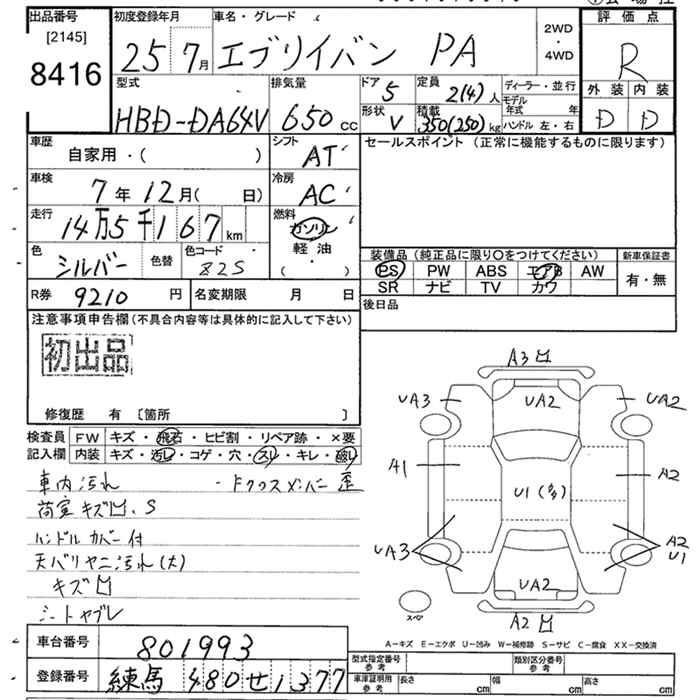 出品番号 初度登録年月 車名・グレード 2WD・4WD 評価点
[2145]
8416 25 7月 エブリイバン PA R
型式 排気量 ドア 5 定員 2(4)人 ディーラー・並行 外装 内装
HBD-DA64V 650cc 形状 V 積載 350(250)kg モデル年式 年 ハンドル 左・右 D D
車歴 自家用・( ) シフト AT セールスポイント (正常に機能するものに限ります)
車検 7年12月( 日) 冷房 AC
走行 14万5千167km 燃料 ガソリン・軽油・( )
色 シルバー 色替 色コード 82S 装備品 (純正品に限り○をつけてください) 新車保証書
PS PW ABS エアB AW 有・無
R券 9210円 名変期限 月 日 SR ナビ TV カワ
注意事項申告欄(不具合内容等は具体的に記入して下さい) 後日品
初出品
修復歴 有 [箇所 ]
検査員記入欄 FW キズ・飛石・ヒビ割・リペア跡・×要
内装 キズ・汚レ・コゲ・穴・スレ・キレ・破レ
車内汚れ ・ドクロスメンバー歪
荷室キズ凹、S
ハンドルカバー付
天バリヤニ汚れ(大)
キズ凹
シートヤブレ
A3凹
UA3 UA2 UA2
A1 A2
U1
UA3 A2 U1
UA2
A2凹
スペア
A-キズ E-エクボ U-凹み W-補修跡 S-サビ C-腐食 XX-交換済
車台番号 801993 型式指定番号 参考 類別区分番号 参考
登録番号 練馬 480 せ 1377 車庫証明用 参考 長さ cm 幅 cm 高さ cm